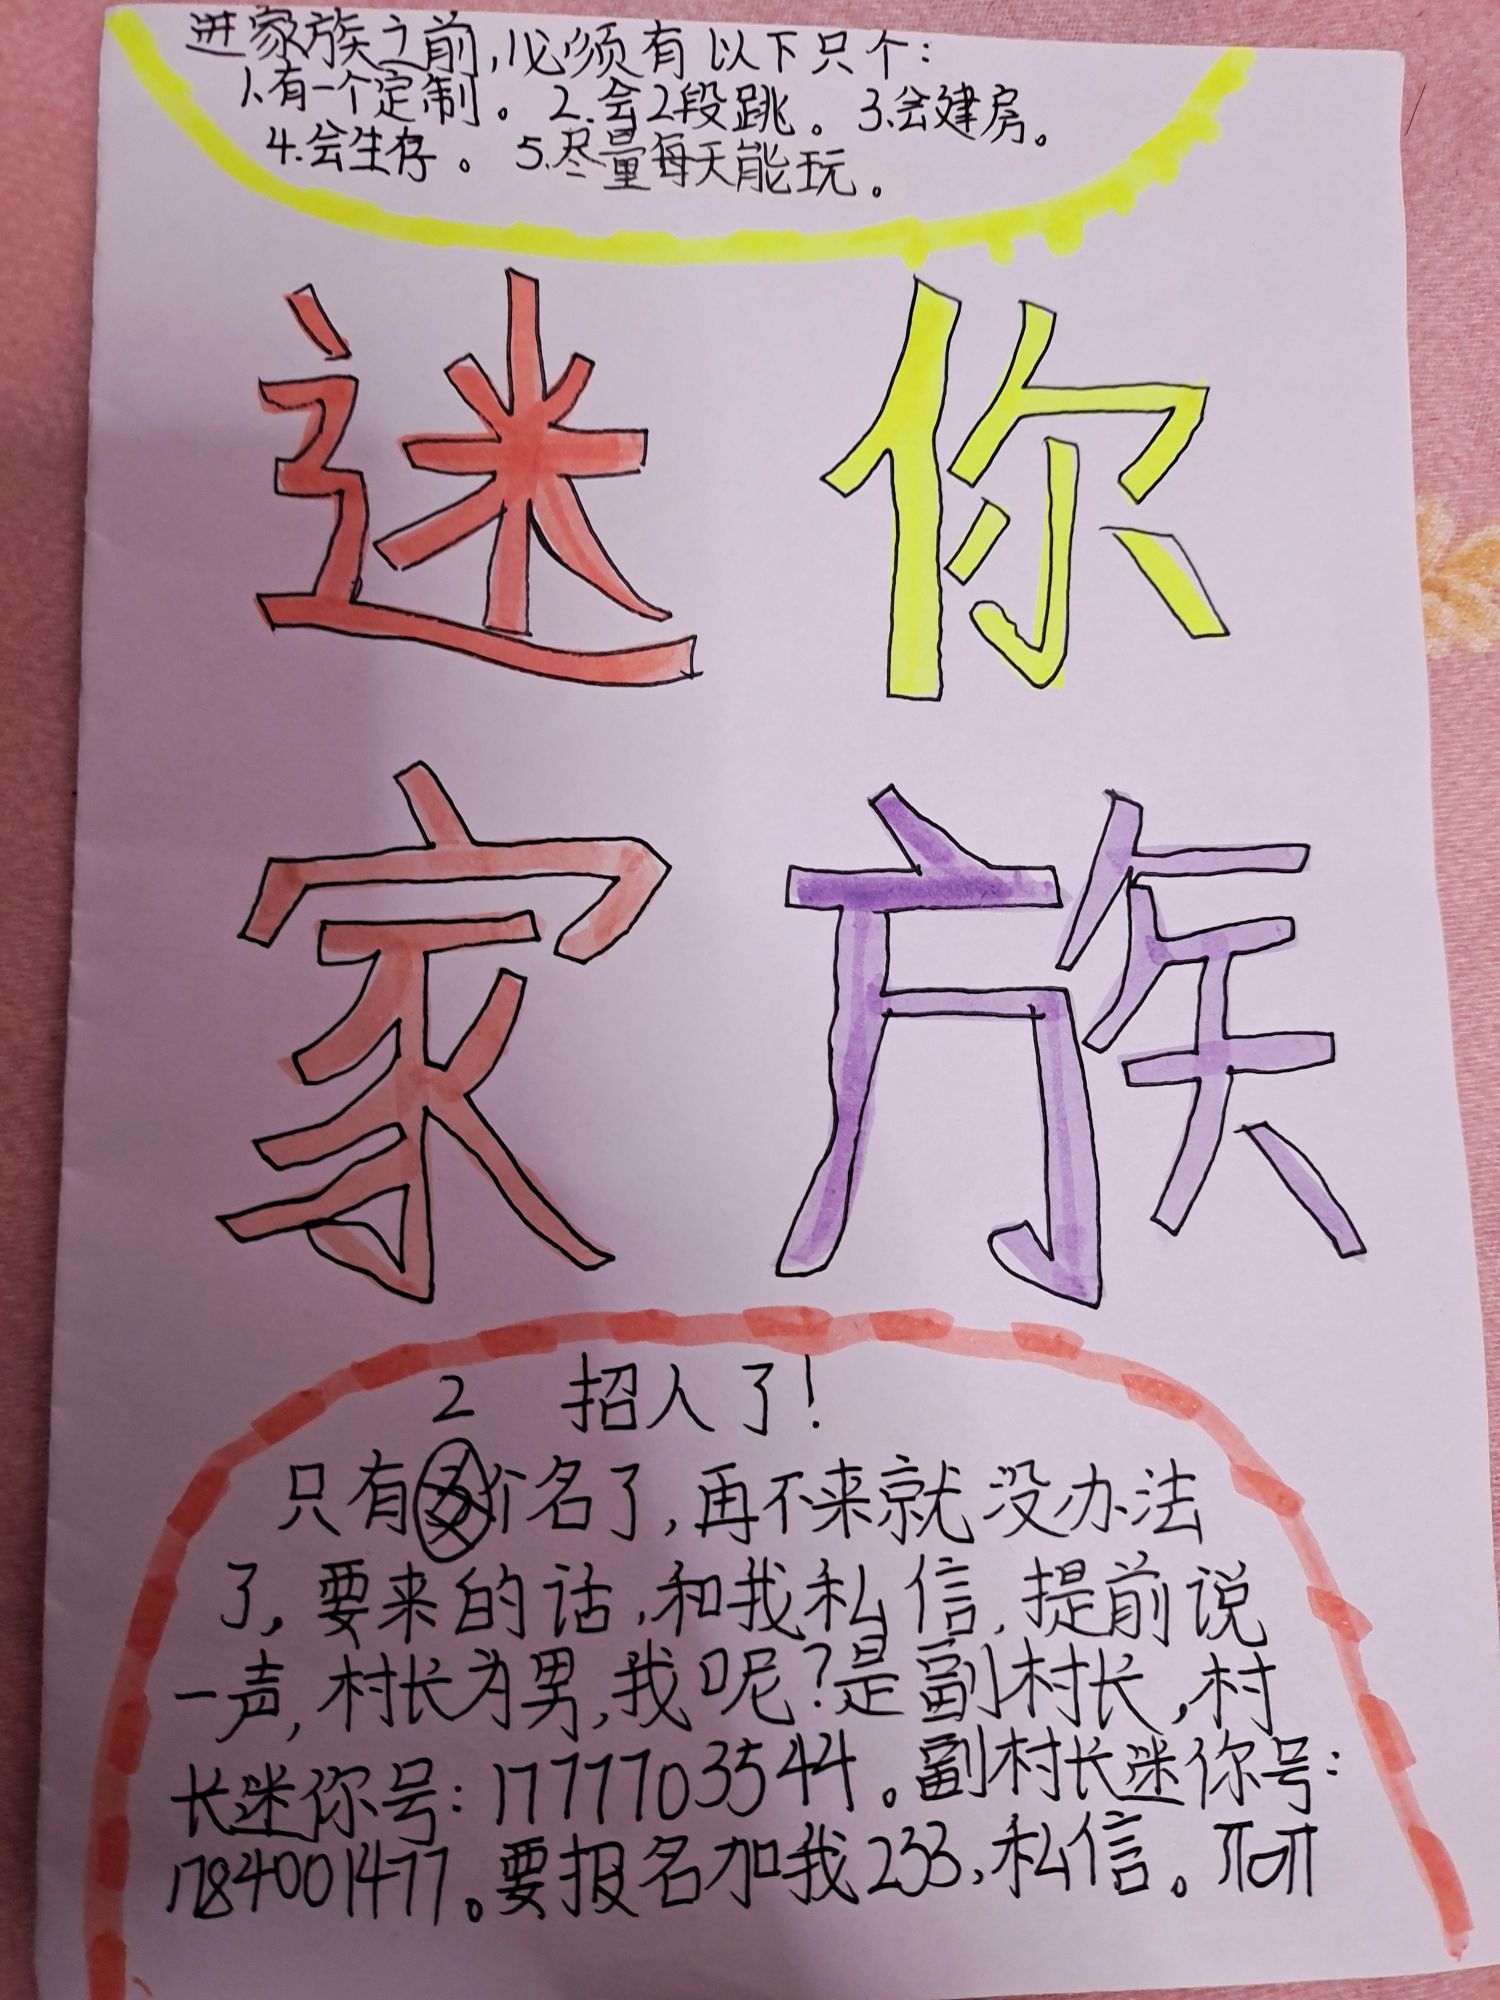 进家族之前,必须有以下只个:
1.有一个定制。2.会2段跳。3.会建房。
4.会生存。5.尽量每天能玩。
迷你
家族
2 招人了!
只有个名了,再不来就没办法
了。要来的话,和我私信,提前说
一声,村长为男,我呢?是副村长,村
长迷你号:1777703544。副村长迷你号:
1784001477。要报名加我233,私信。